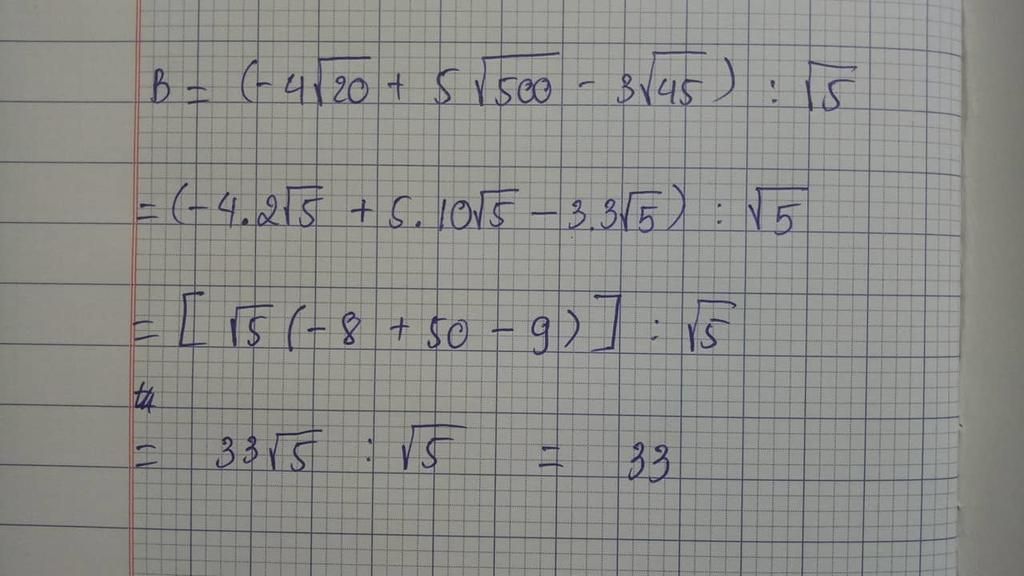 B = (-4√20 + 5√500 - 3√45) : √5
= (-4.2√5 + 5.10√5 - 3.3√5) : √5
= [√5(-8 + 50 - 9)] : √5
= 33√5 : √5 = 33